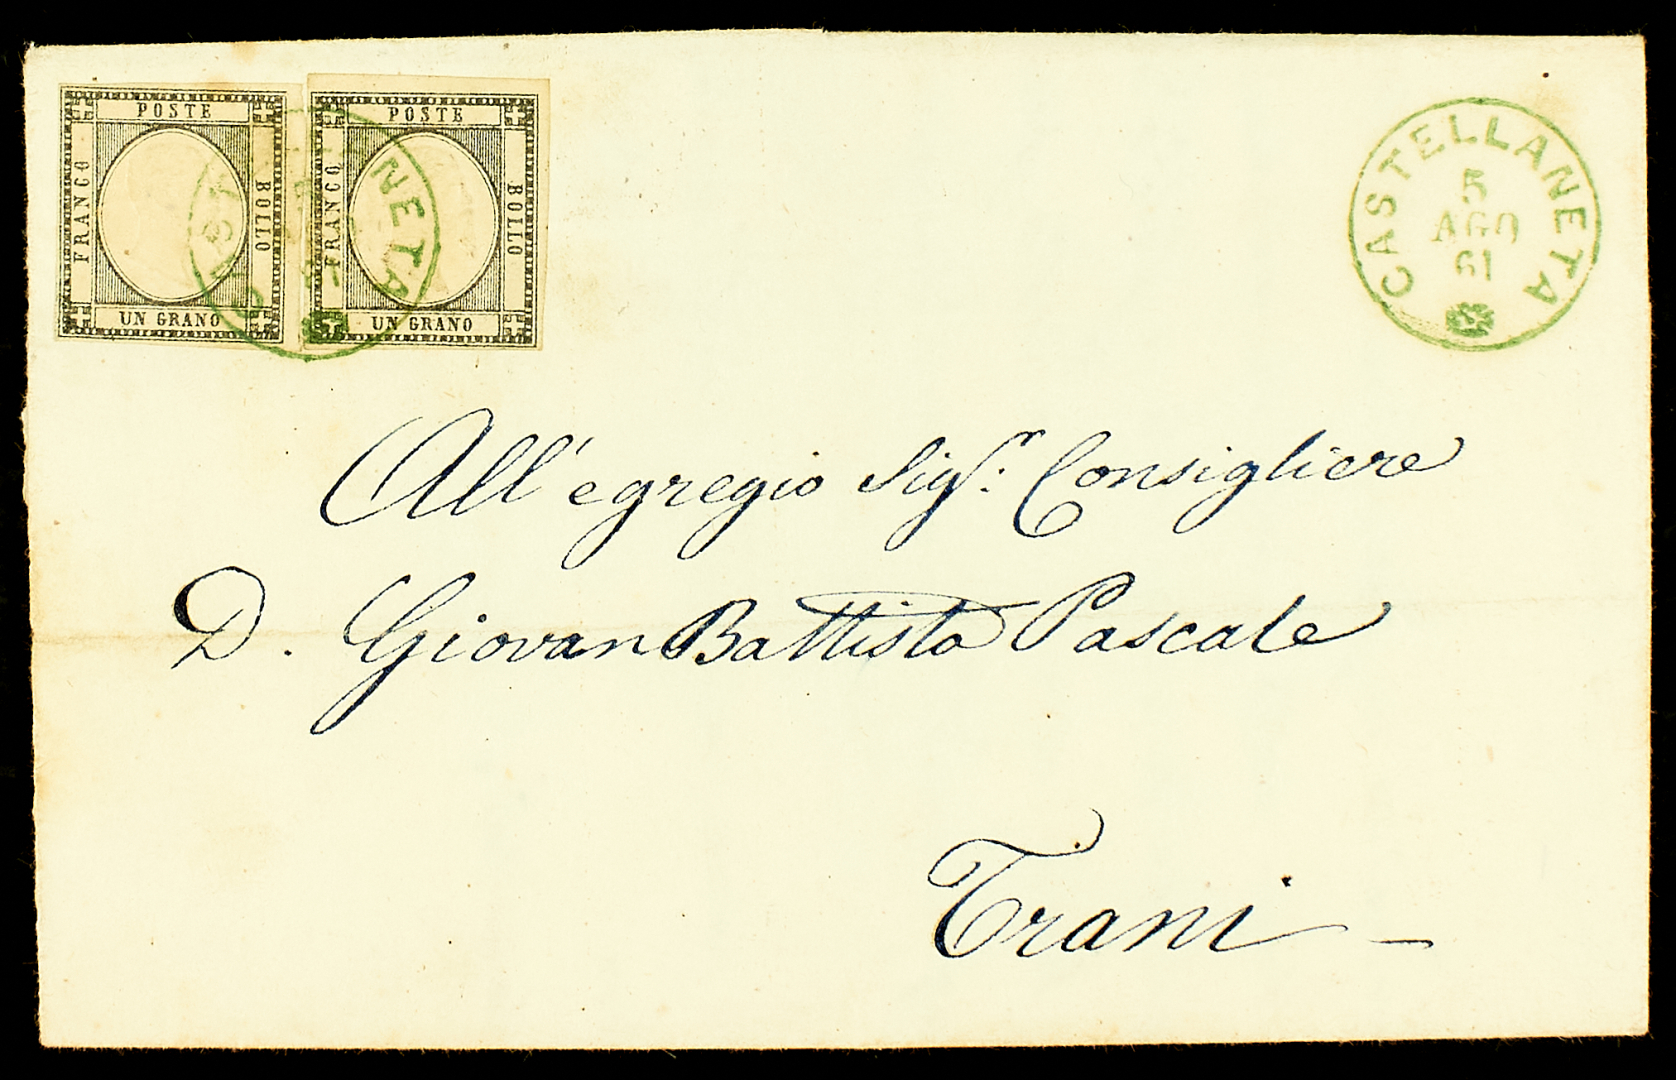 POSTE
FRANCO
BOLLO
UN GRANO
POSTE
FRANCO
BOLLO
UN GRANO
CASTELLANETA
5
AGO
61
All'egregio Sigr. Consigliere
D. Giovan Battista Pascale
Trani –